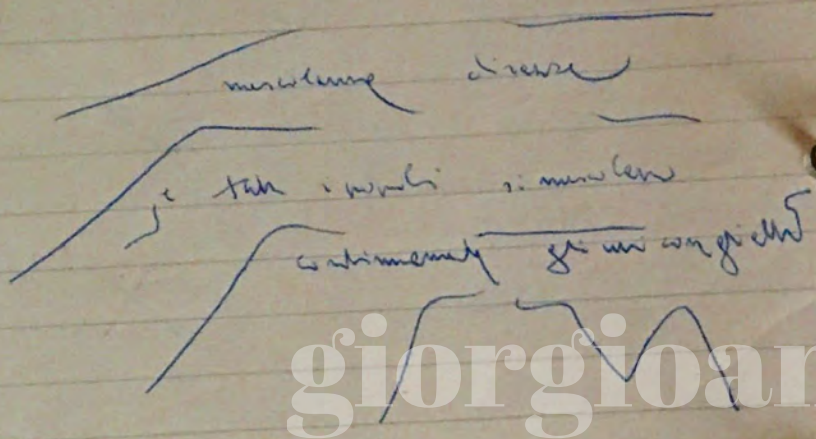 mescolanze diverse
se tutti i popoli si mescolano
continuamente gli uni con gli altri
giorgioan